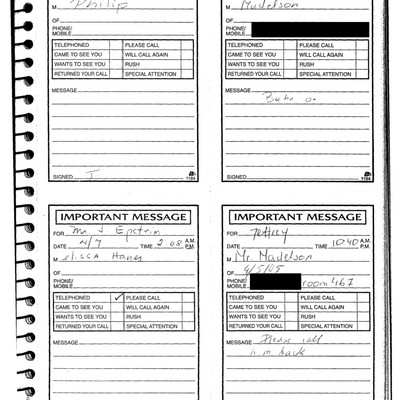 M Philip
OF
PHONE/
MOBILE
TELEPHONED PLEASE CALL
CAME TO SEE YOU WILL CALL AGAIN
WANTS TO SEE YOU RUSH
RETURNED YOUR CALL SPECIAL ATTENTION
MESSAGE
SIGNED J
1184
M Madelson
OF
PHONE/
MOBILE
TELEPHONED PLEASE CALL
CAME TO SEE YOU WILL CALL AGAIN
WANTS TO SEE YOU RUSH
RETURNED YOUR CALL SPECIAL ATTENTION
MESSAGE
SIGNED
1184
IMPORTANT MESSAGE
FOR Mr J Epstein
DATE 4/7 TIME 2:08 A.M.
P.M.
M
OF
PHONE/
MOBILE
TELEPHONED ✓ PLEASE CALL
CAME TO SEE YOU WILL CALL AGAIN
WANTS TO SEE YOU RUSH
RETURNED YOUR CALL SPECIAL ATTENTION
MESSAGE
IMPORTANT MESSAGE
FOR Jeffrey
DATE TIME 10:40 A.M.
P.M.
M Mr. Madelson
OF 4/5/05
PHONE/
MOBILE room 467
TELEPHONED PLEASE CALL
CAME TO SEE YOU WILL CALL AGAIN
WANTS TO SEE YOU RUSH
RETURNED YOUR CALL SPECIAL ATTENTION
MESSAGE Please call
him back